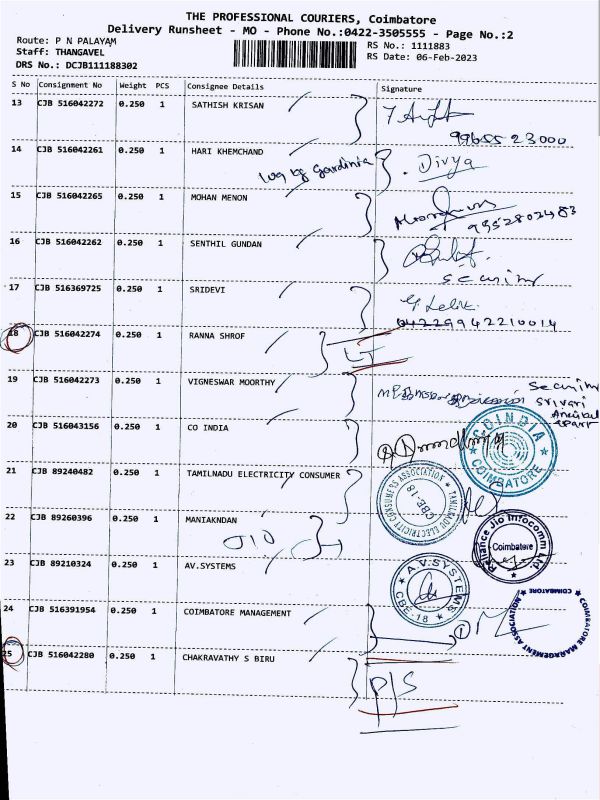 THE PROFESSIONAL COURIERS, Coimbatore
Delivery Runsheet - MO - Phone No.:0422-3505555 - Page No.:2
Route: P N PALAYAM
Staff: THANGAVEL
DRS No.: DCJB111188302
RS No.: 1111883
RS Date: 06-Feb-2023
S No Consignment No Weight PCS Consignee Details Signature
13 CJB 516042272 0.250 1 SATHISH KRISAN
9965523000
14 CJB 516042261 0.250 1 HARI KHEMCHAND
gardinia Divya
15 CJB 516042265 0.250 1 MOHAN MENON
9952802483
16 CJB 516042262 0.250 1 SENTHIL GUNDAN
Security
17 CJB 516369725 0.250 1 SRIDEVI
04229942210014
18 CJB 516042274 0.250 1 RANNA SHROF
19 CJB 516042273 0.250 1 VIGNESWAR MOORTHY
Security
Srivari
20 CJB 516043156 0.250 1 CO INDIA
COINDIA
COIMBATORE
21 CJB 89240482 0.250 1 TAMILNADU ELECTRICITY CONSUMER
TAMILNADU ELECTRICITY CONSUMERS ASSOCIATION
CBE-18
22 CJB 89260396 0.250 1 MANIAKNDAN
JIO
Reliance Jio Infocomm Ltd.
Coimbatore
23 CJB 89210324 0.250 1 AV.SYSTEMS
A.V.SYSTEMS
CBE-18
24 CJB 516391954 0.250 1 COIMBATORE MANAGEMENT
COIMBATORE MANAGEMENT ASSOCIATION
COIMBATORE
25 CJB 516042280 0.250 1 CHAKRAVATHY S BIRU
P/S